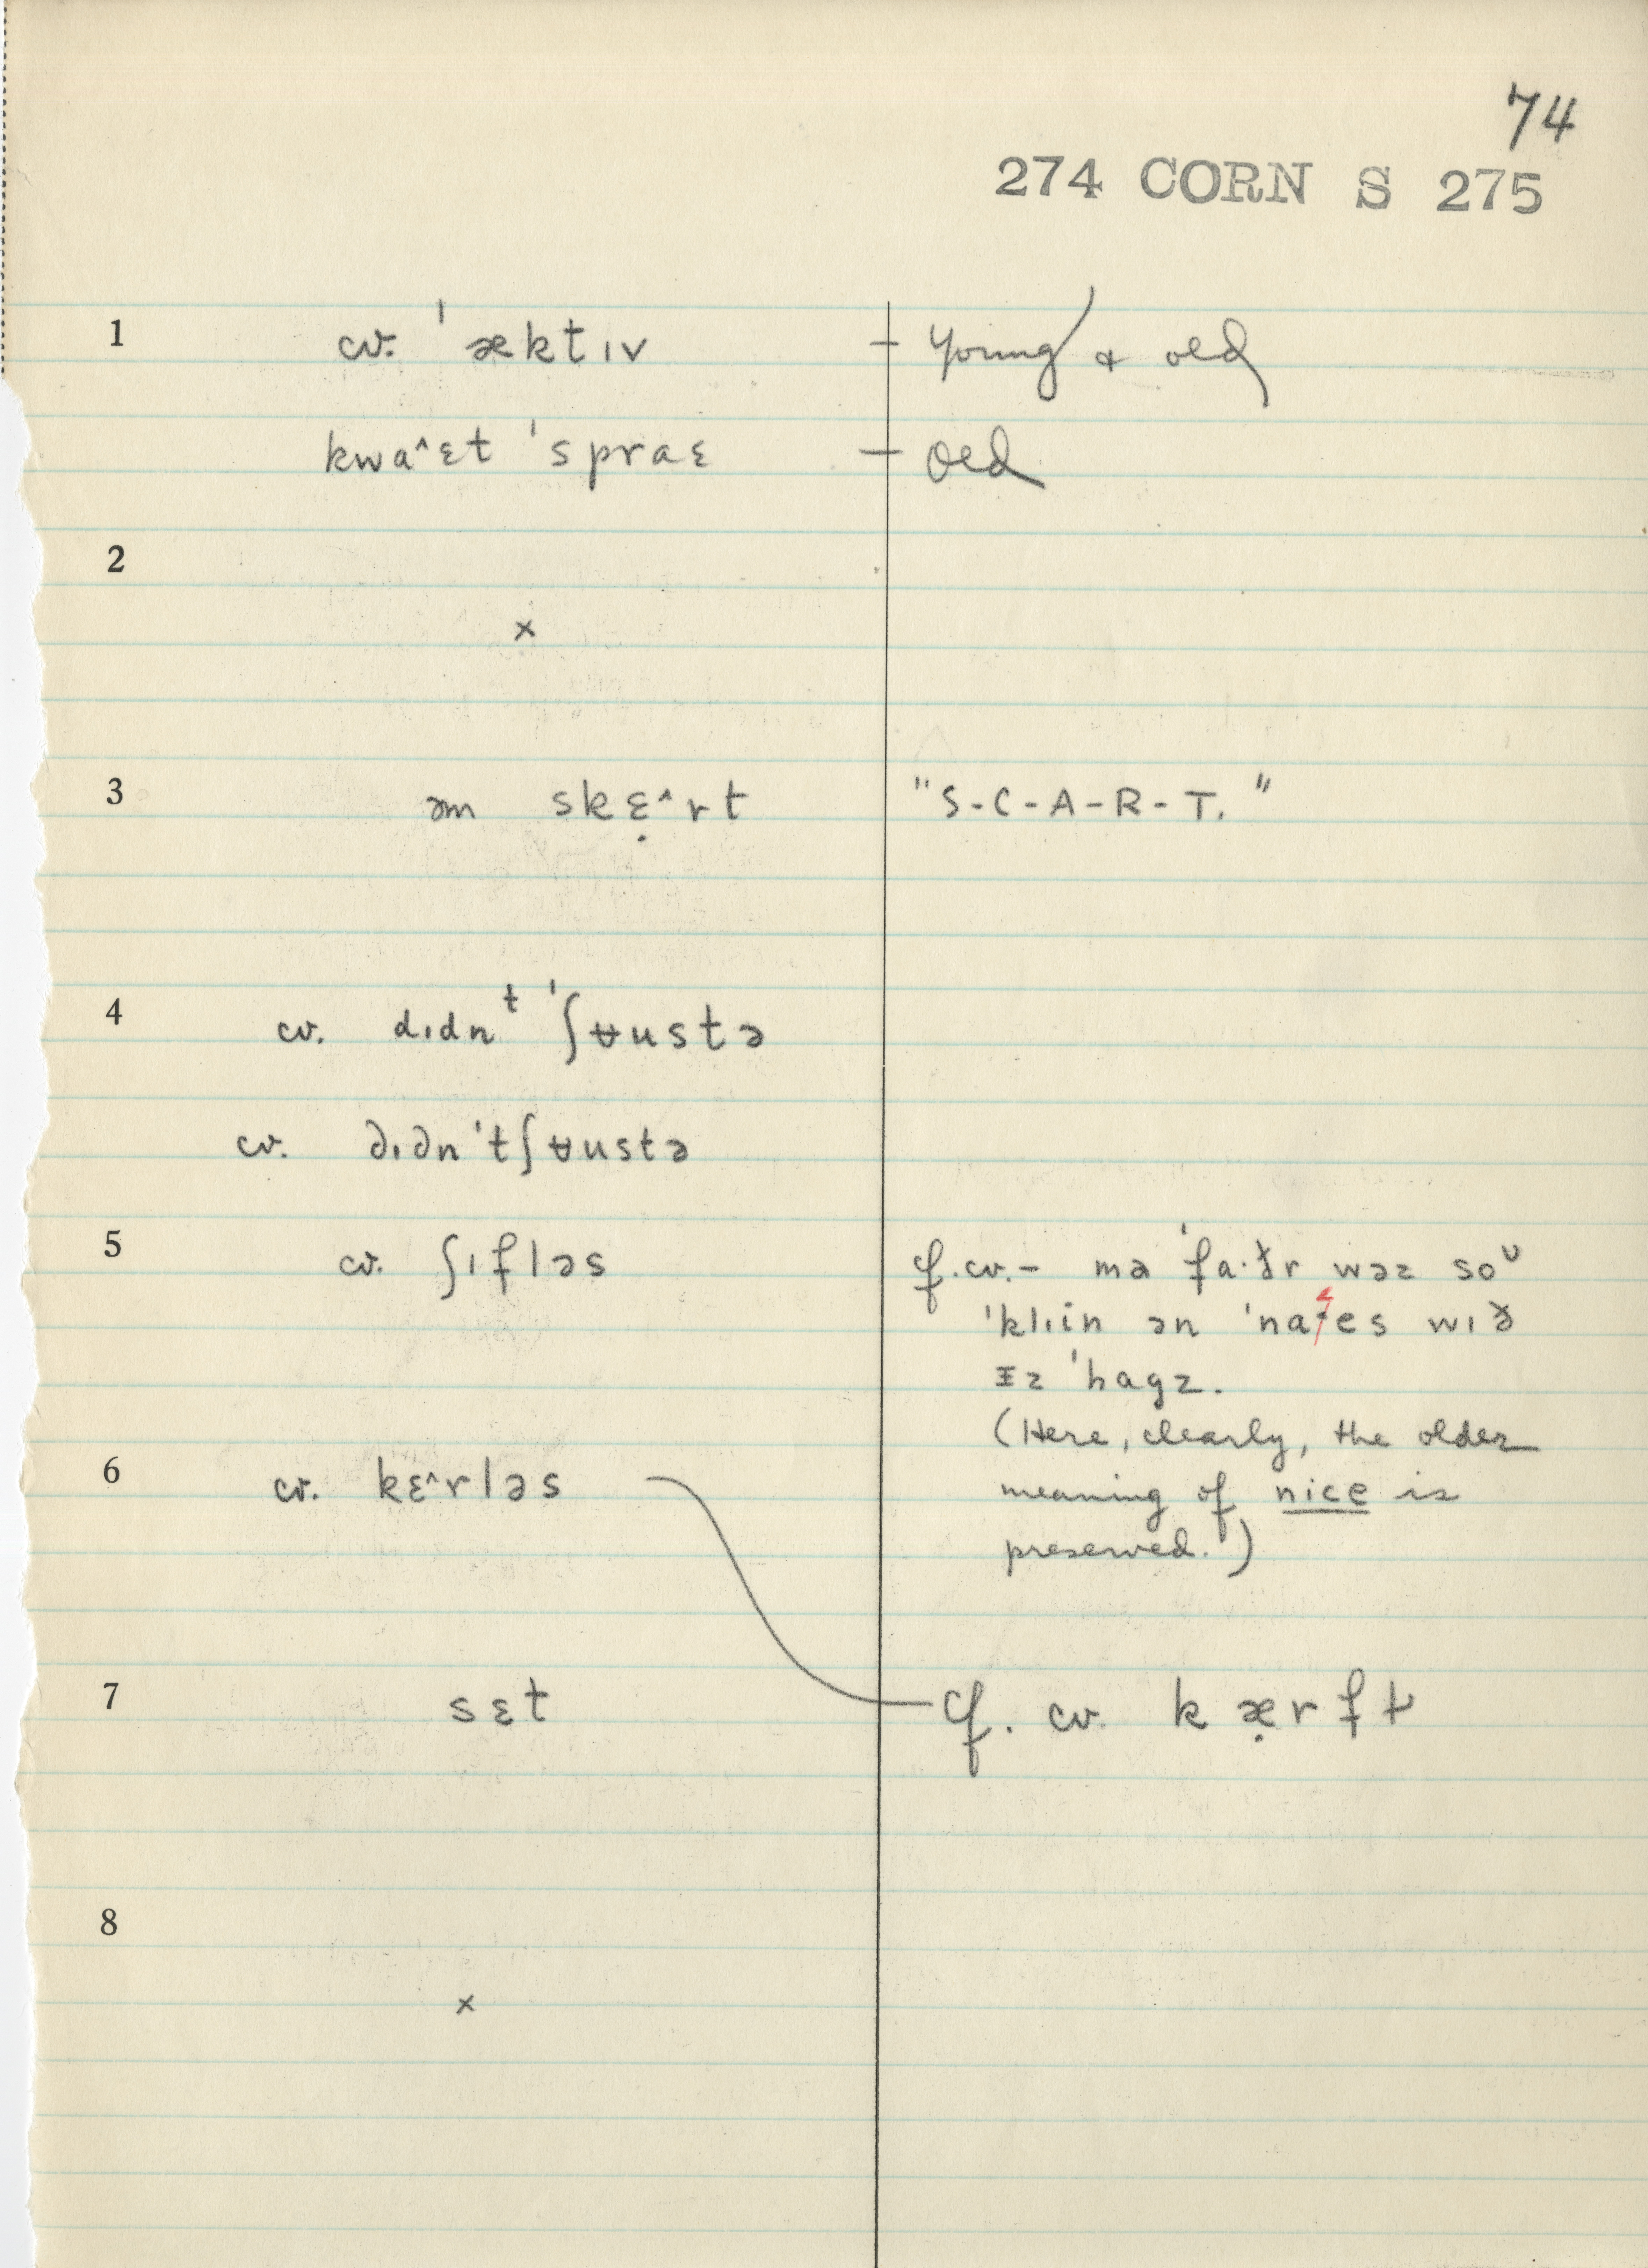 74
274 CORN S 275
1 cv. ˈæktɪv – young & old
kwaˆɛt ˈspraɛ – old
2
×
3 əm skɛ̣ˆrt "S-C-A-R-T."
4 cv. dɪdnᵗ ˈʃʉustə
cv. dɪdnˈtʃʉustə
5 cv. ʃɪfləs cf. cv. – mə ˈfa·ðr wəz soᵁ
ˈklɪin ən ˈnaˑes wɪð
ɪz ˈhagz.
(Here, clearly, the older
6 cv. kɛˆrləs meaning of nice is
preserved.)
7 sɛt cf. cv. kæ̣rft
8
×